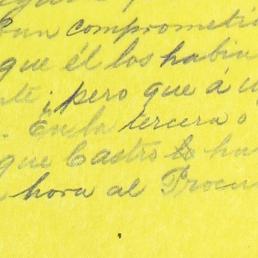 bun comprometi
que él los habia
nte; pero que á u
. En la tercera o
que Castro lo ha
hora al Procu